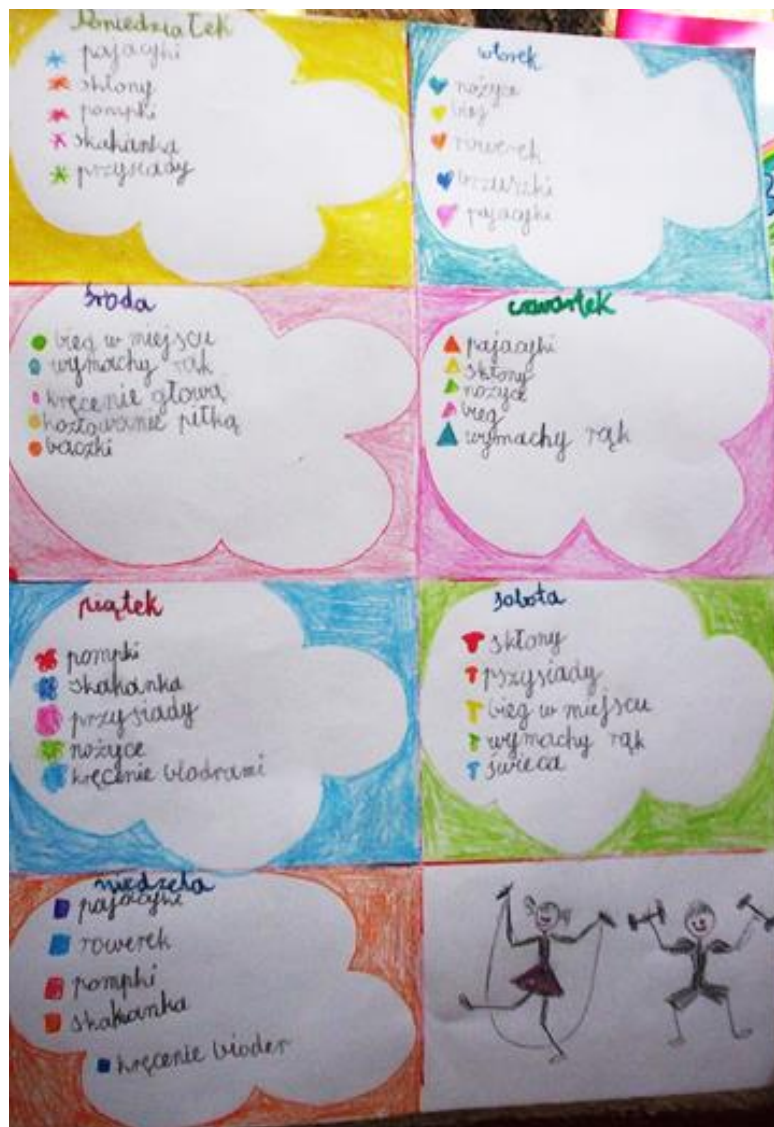 Poniedziałek
pajacyki
skłony
pompki
skakanka
przysiady
wtorek
nożyce
bieg
rowerek
brzuszki
pajacyki
środa
bieg w miejscu
wymachy rąk
kręcenie głową
kozłowanie piłką
bączki
czwartek
pajacyki
skłony
nożyce
bieg
wymachy rąk
piątek
pompki
skakanka
przysiady
nożyce
kręcenie biodrami
sobota
skłony
przysiady
bieg w miejscu
wymachy rąk
świeca
niedzela
pajacyki
rowerek
pompki
skakanka
kręcenie bioder